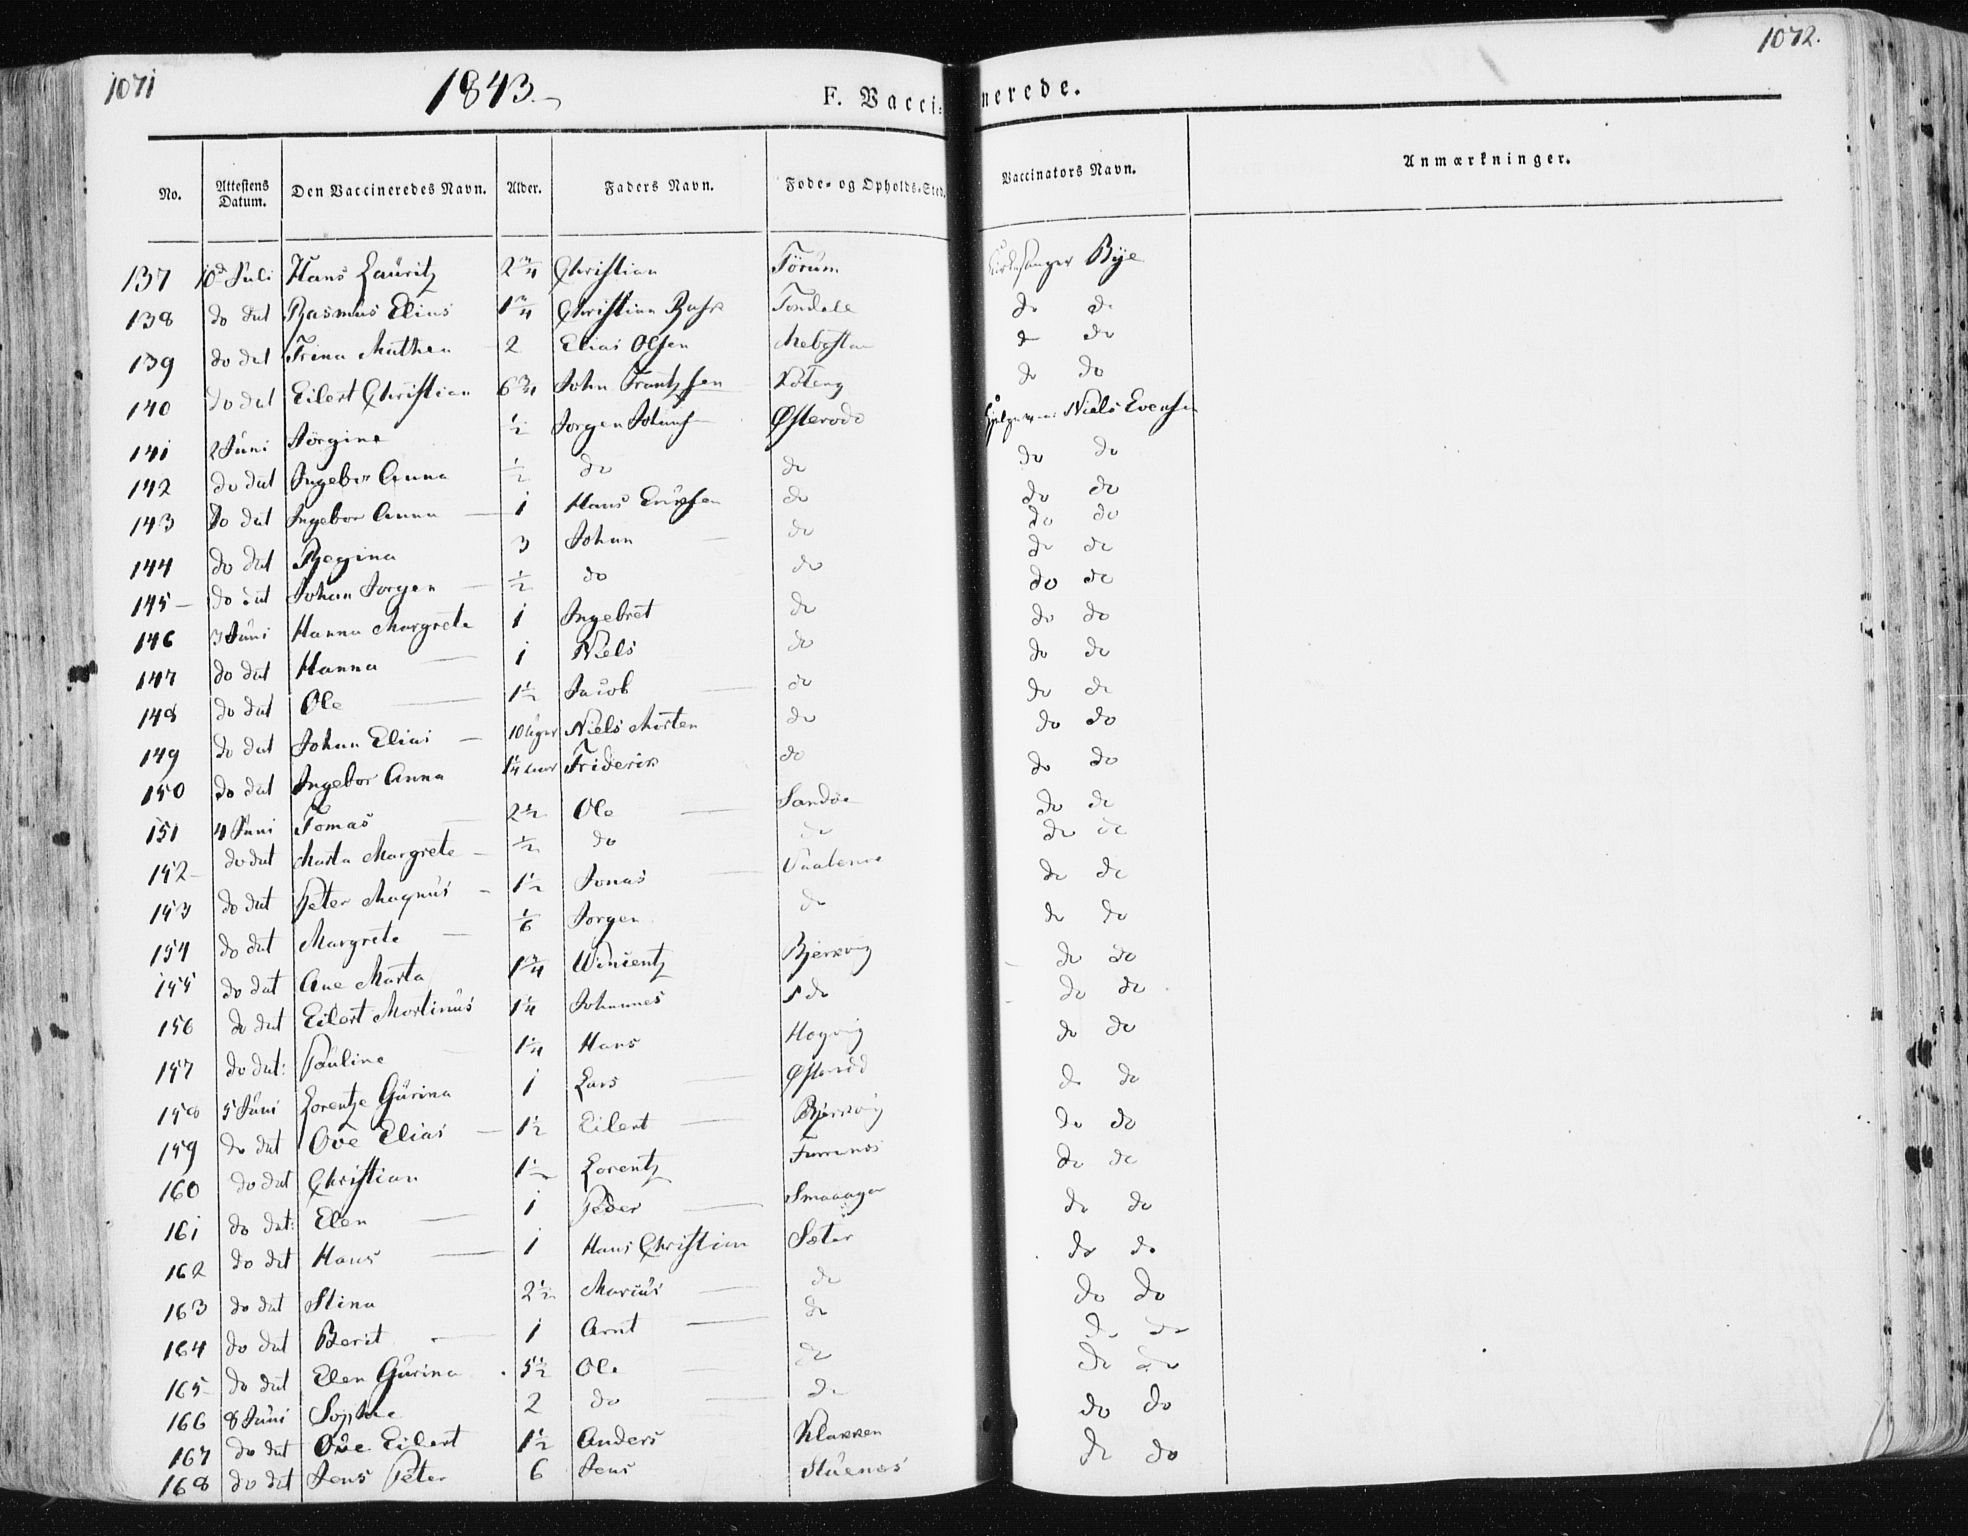 1071
1843.
F. Vaccinerede.
1072.
No. Attestens Datum. Den Vaccineredes Navn. Alder. Faders Navn. Føde- og Opholds-Sted. Vaccinators Navn. Anmærkninger.
137 10d Juli Hans Lauritz 2 3/4 Christian Förum Kirkesanger Bye
138 do dat Rasmus Elias 1 3/4 Christian Tondele do do
139 do dat Trina Mathea 2 Elias Olsen do do
140 do dat Eilert Christian 6 3/4 John Frantzsen do do
141 2 Juni Jörgine 1/2 Jorgen Johans Østerode Niels Evensen
142 do dat Ingebor Anna 1/2 do do do do
143 do dat Ingebor Anna 1 Hans do do do
144 do dat Regina 3 Johan do do do
145 do dat Johan Jorgen 1/2 do do do do
146 3 Juni Hanna Margrete 1 Ingebret do do do
147 do dat Hanna 1 Niels do do do
148 do dat Ole 1 1/2 Jacob do do do
149 do dat Johan Elias 10 Uger Niels Morten do do do
150 do dat Ingebor Anna 1 1/4 aar Friderik do do do
151 4 Juni Tomas 2 1/2 Ole Sandöe do do
152 do dat Marta Margrete 1/2 do do do do
153 do dat Peter Magnus 1 1/2 Jonas do do
154 do dat Margrete 1/6 Jorgen do do do
155 do dat Ane Marta 1 3/4 Winientz Bjerkvig do do
156 do dat Eilert Martinus 1 1/4 Johannes do do do
157 do dat: Pauline 1 1/4 Hans Hegvig do do
158 5 Juni Lorentze Gurina 1 Lars Østerod do do
159 do dat Ove Elias 1 1/2 Eilert Bjerkvig do do
160 do dat Christian 1 1/2 Lorentz do do
161 do dat: Elen 1 Peder Smaaager do do
162 do dat Hans 1 Hans Christian Sæter do do
163 do dat Stina 2 1/2 Marius do do do
164 do dat Berit 1 Arnt do do do
165 do dat Elen Gurina 5 1/2 Ole do do do
166 8 Juni Sophie 2 do do do do
167 do dat Ove Eilert 1 1/2 Anders Klakken do do
168 do dat Jens Peter 6 Jens Stuenes